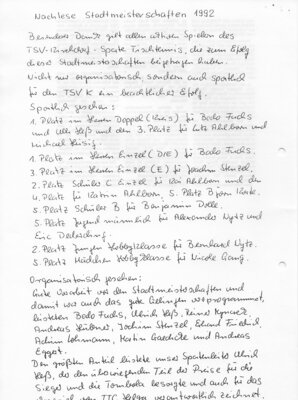 Nachlese Stadtmeisterschaften 1992
Besonderer Dank gilt allen aktiven Spielern des
TSV - Sparte Tischtennis, die zum Erfolg
dieser Stadtmeisterschaften beigetragen haben.
Nicht nur organisatorisch, sondern auch sportlich
für den TSV K ein beachtlicher Erfolg.
Sportlich gesehen:
1. Platz im Herren Doppel für Bodo Fuchs
und Ulli Heß und den 3. Platz für Lutz Ahlborn und
Michael
1. Platz im Herren Einzel (D/E) für Bodo Fuchs.
3. Platz im Herren Einzel (E) für Joachim Stenzel,
2. Platz Schüler C Einzel für Kai Ahlborn und den
4. Platz für Katrin Ahlborn, 5. Platz Björn
5. Platz Schüler B für Benjamin
5. Platz Jugend männlich für Alexander Nytz und
Eric
2. Platz Jungen Hobbyklasse für Bernhard Nytz.
5. Platz Mädchen Hobbyklasse für Nicole Gang.
Organisatorisch gesehen:
Gute Vorarbeit vor den Stadtmeisterschaften und
damit war auch das gute Gelingen vorprogrammiert,
leisteten Bodo Fuchs, Ulrich Heß, Reiner
Andreas Hübner, Joachim Stenzel, Erhard Friedrich,
Achim Lohmann, Martin und Andreas
Eggert.
Den größten Anteil leistete unser Spartenleiter Ulrich
Heß, der den überwiegenden Teil der Preise für die
Sieger und die Tombola besorgte und auch für das
TTC verantwortlich zeichnet,